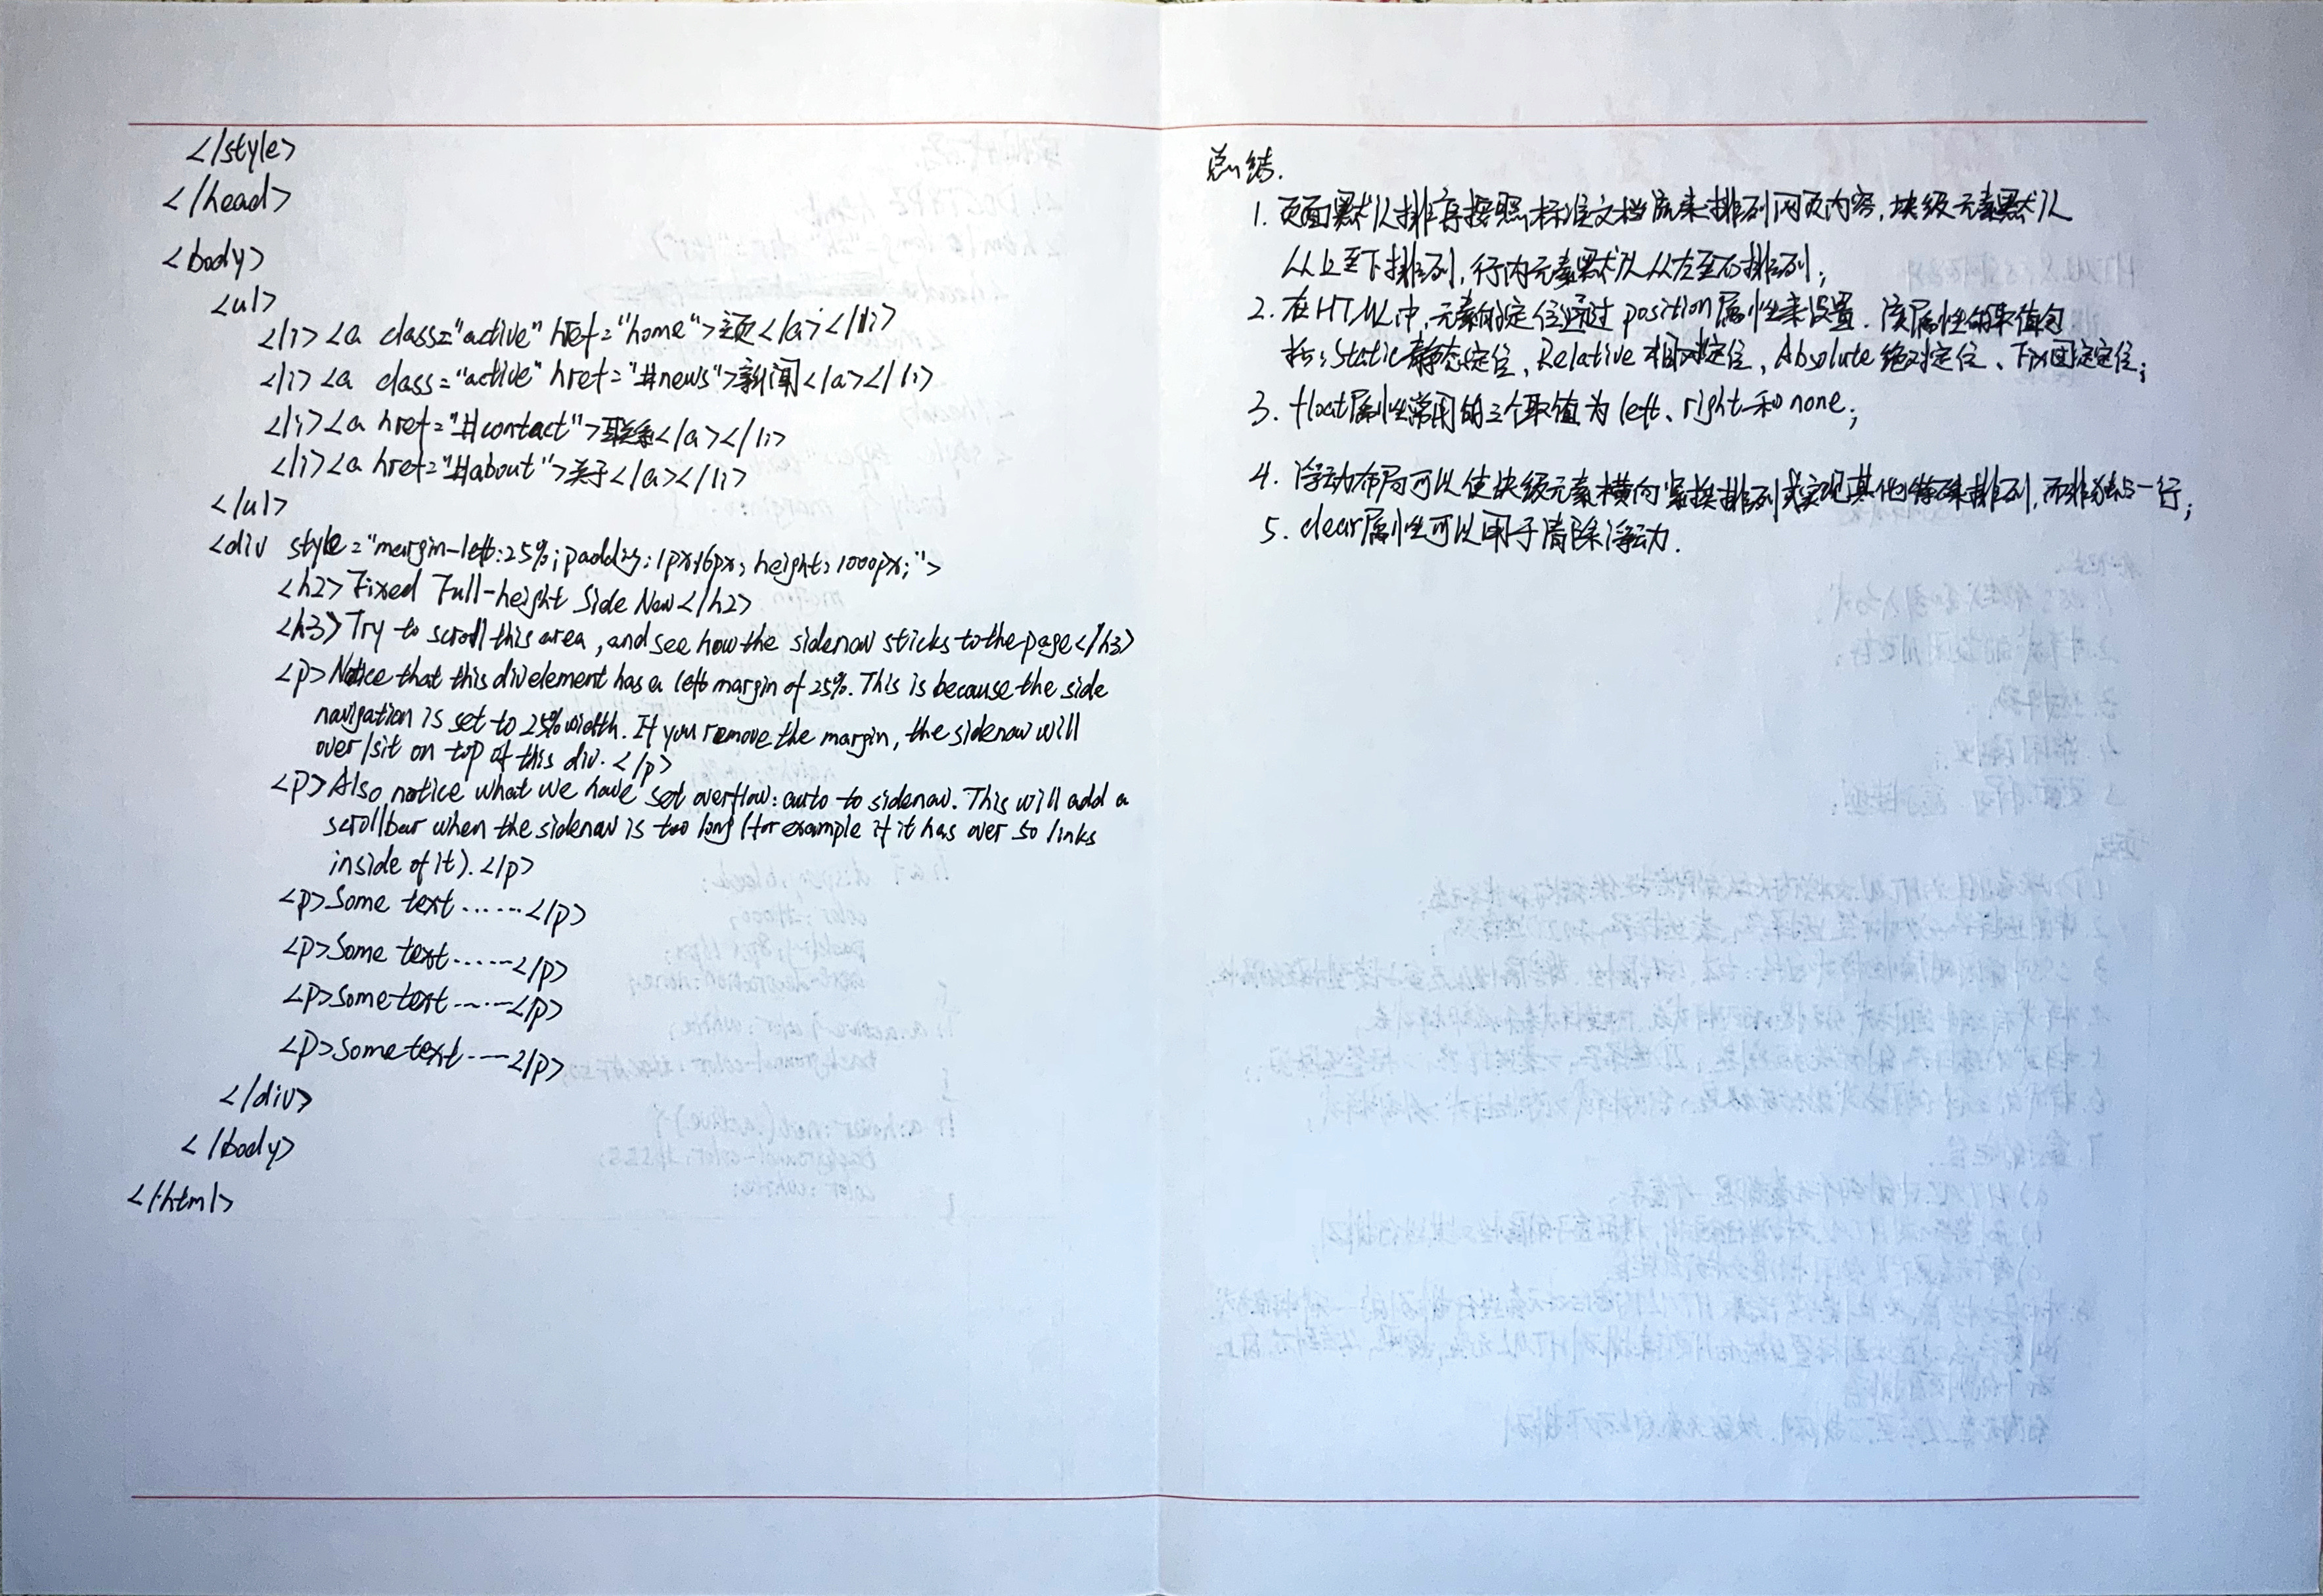 </style>
</head>
<body>
<ul>
<li><a class="active" href="home">主页</a></li>
<li><a class="active" href="#news">新闻</a></li>
<li><a href="#contact">联系</a></li>
<li><a href="#about">关于</a></li>
</ul>
<div style="margin-left:25%;padding:1px 16px;height:1000px;">
<h2>Fixed Full-height Side Nav</h2>
<h3>Try to scroll this area, and see how the sidenav sticks to the page</h3>
<p>Notice that this div element has a left margin of 25%. This is because the side
navigation is set to 25% width. If you remove the margin, the sidenav will
over/sit on top of this div.</p>
<p>Also notice what we have set overflow:auto to sidenav. This will add a
scrollbar when the sidenav is too long (for example if it has over 50 links
inside of it).</p>
<p>Some text......</p>
<p>Some text......</p>
<p>Some text......</p>
<p>Some text......</p>
</div>
</body>
</html>
总结.
1. 页面默认排序按照标准文档流来排列网页内容,块级元素默认
从上至下排列,行内元素默认从左至右排列;
2. 在HTML中,元素的定位通过position属性来设置.该属性的取值包
括:Static静态定位、Relative相对定位、Absolute绝对定位、Fix固定定位;
3. float属性常用的三个取值为left、right和none;
4. 浮动布局可以使块级元素横向紧挨排列或实现其他特殊排列,而非独占一行;
5. clear属性可以用于清除浮动.